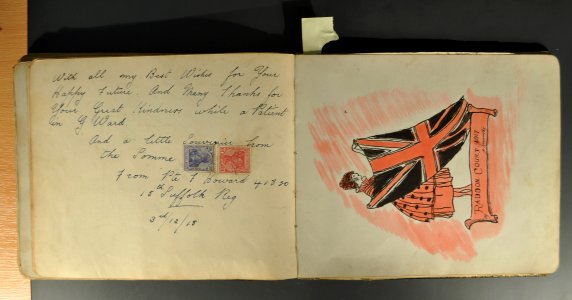 With all my Best Wishes for Your
Happy Future, And Many Thanks for
Your Great Kindness while a Patient
in G Ward
And a little Souvenir from
the Somme
From Pte F Boward 41830
15th Suffolk Reg
3rd/12/18
RADDON COURT